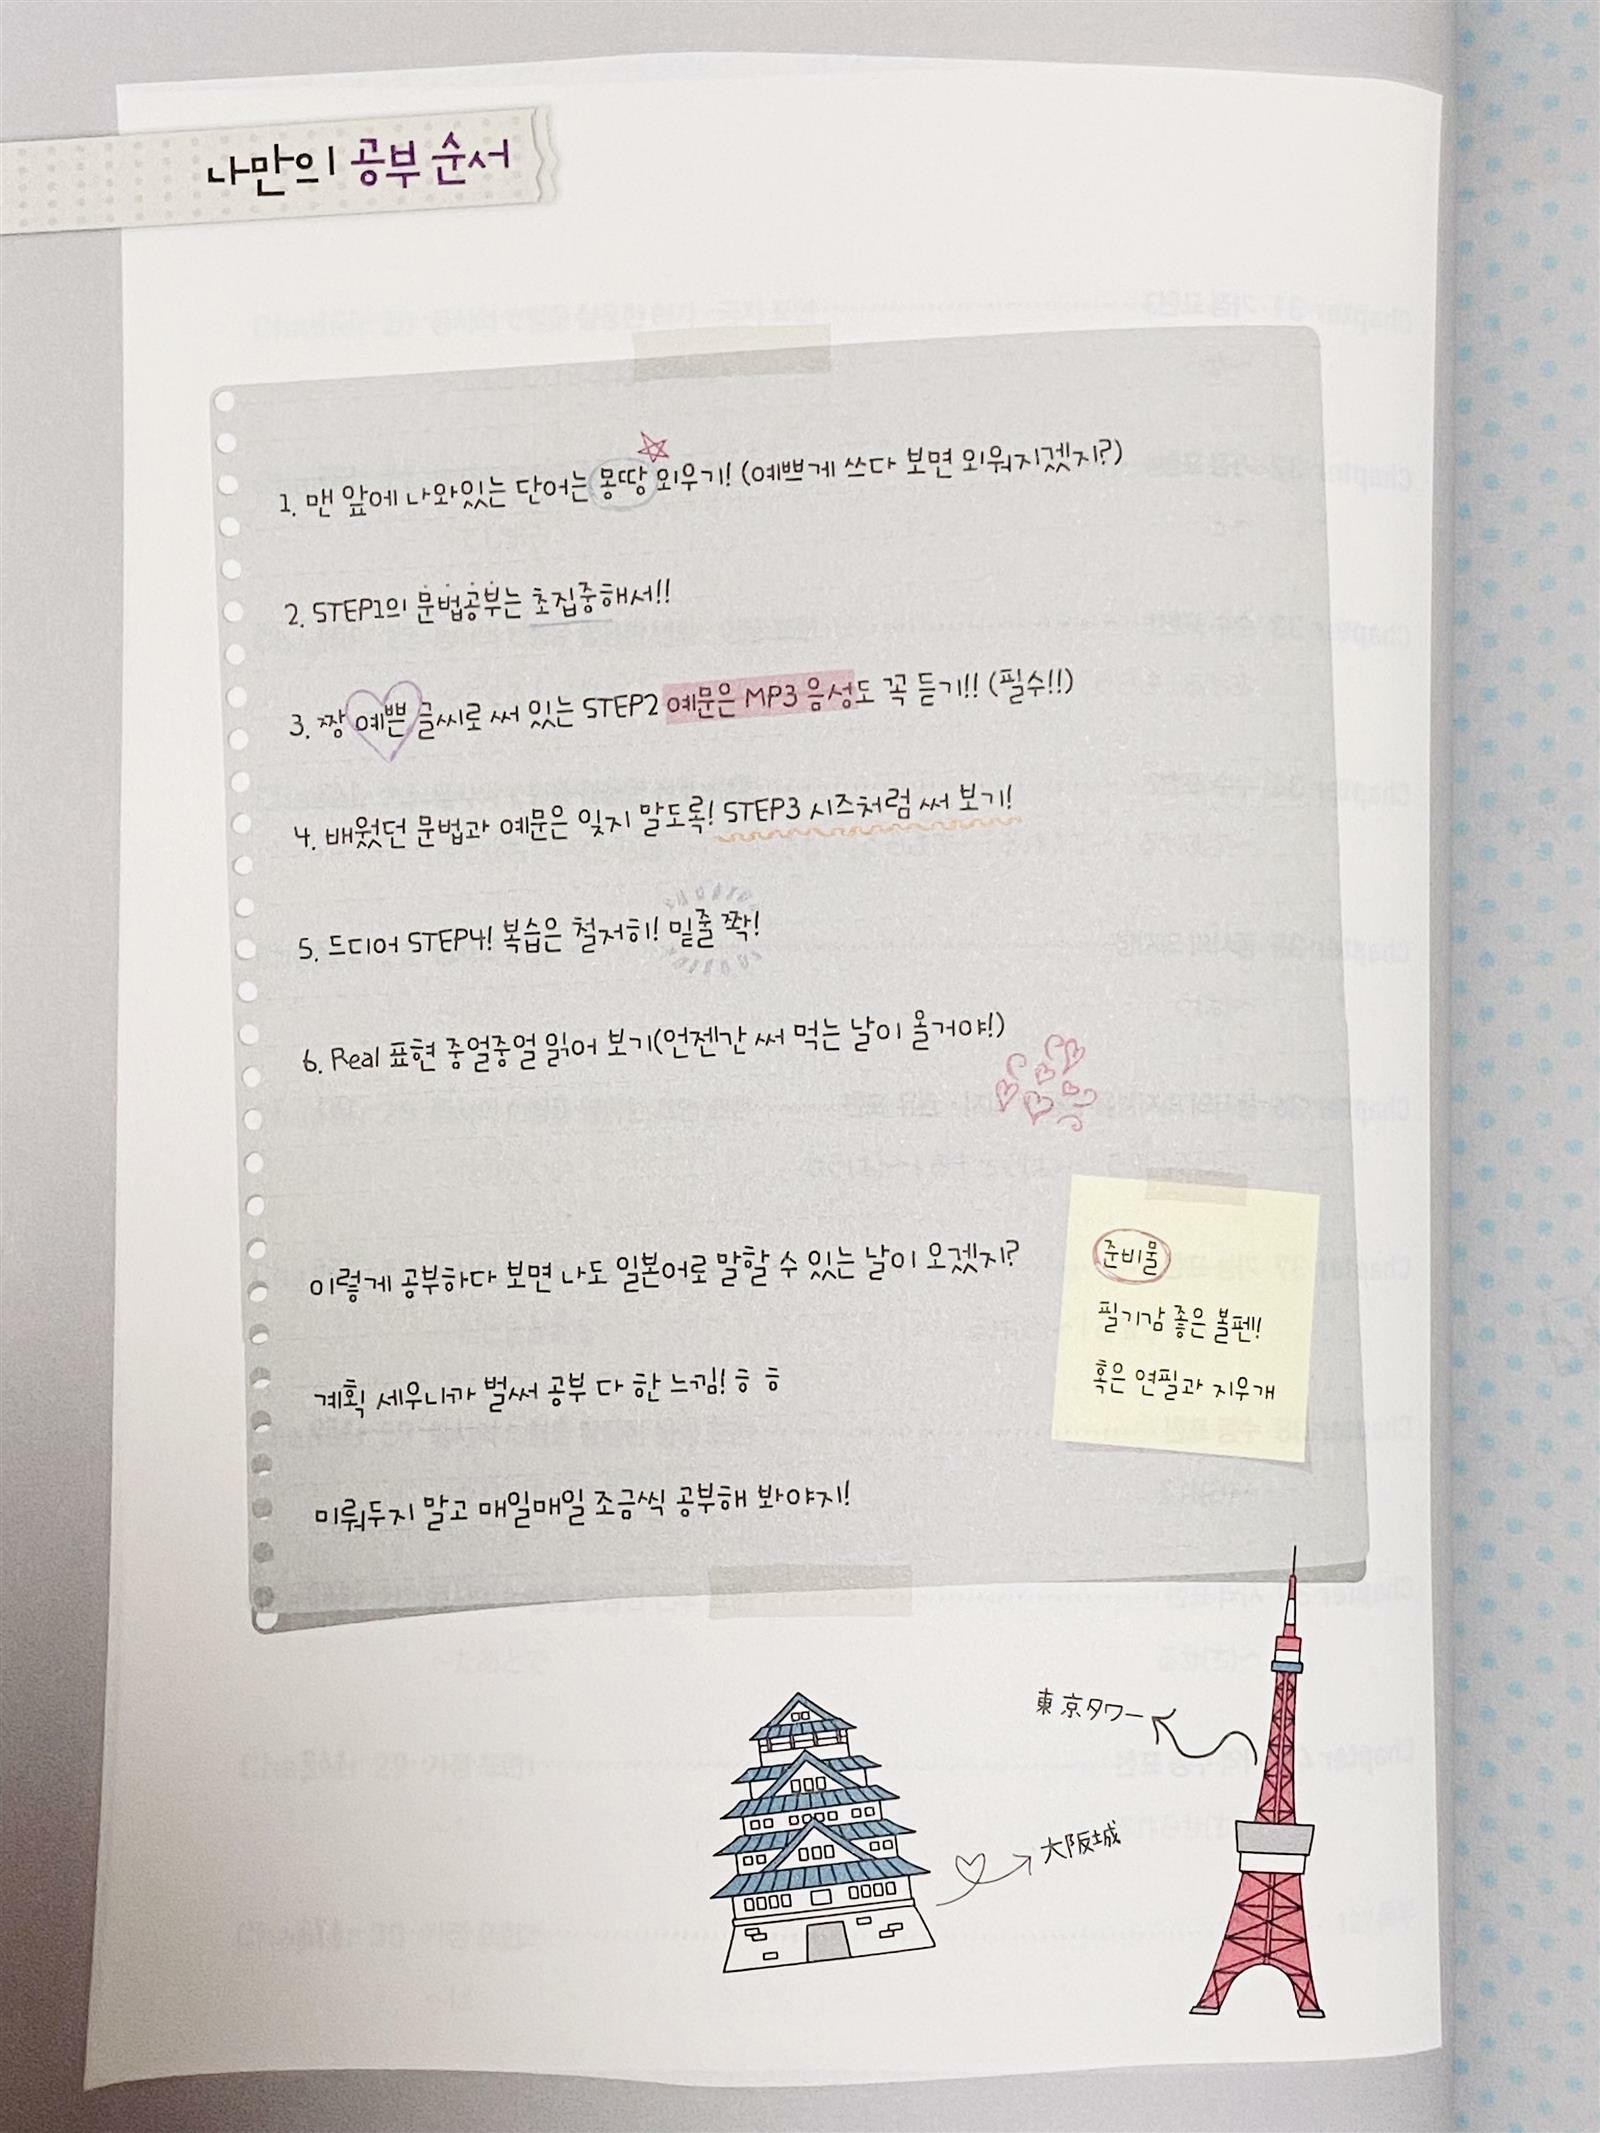 나만의 공부 순서
1. 맨 앞에 나와있는 단어는 몽땅 외우기! (예쁘게 쓰다 보면 외워지겠지?)
2. STEP1의 문법공부는 초집중해서!!
3. 짱 예쁜 글씨로 써 있는 STEP2 예문은 MP3 음성도 꼭 듣기!! (필수!!)
4. 배웠던 문법과 예문은 잊지 말도록! STEP3 시즈처럼 써 보기!
5. 드디어 STEP4! 복습은 철저히! 밑줄 쫙!
6. Real 표현 중얼중얼 읽어 보기(언젠간 써 먹는 날이 올거야!)
이렇게 공부하다 보면 나도 일본어로 말할 수 있는 날이 오겠지?
계획 세우니까 벌써 공부 다 한 느낌! ㅎ ㅎ
미뤄두지 말고 매일매일 조금씩 공부해 봐야지!
준비물
필기감 좋은 볼펜!
혹은 연필과 지우개
東京タワー
大阪城